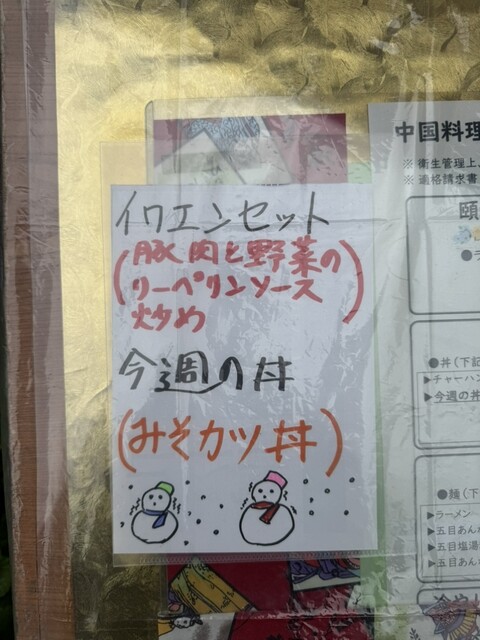 イワエンセット
(豚肉と野菜の
リーペリンソース
炒め)
今週の丼
(みそカツ丼)
中国料理
※ 衛生管理上、
※ 適格請求書
頤
●丼(下記
▶チャーハン
▶今週の丼
●麺(下
▶ラーメン
▶五目あんか
▶五目塩湯
▶五目あん
冷やし